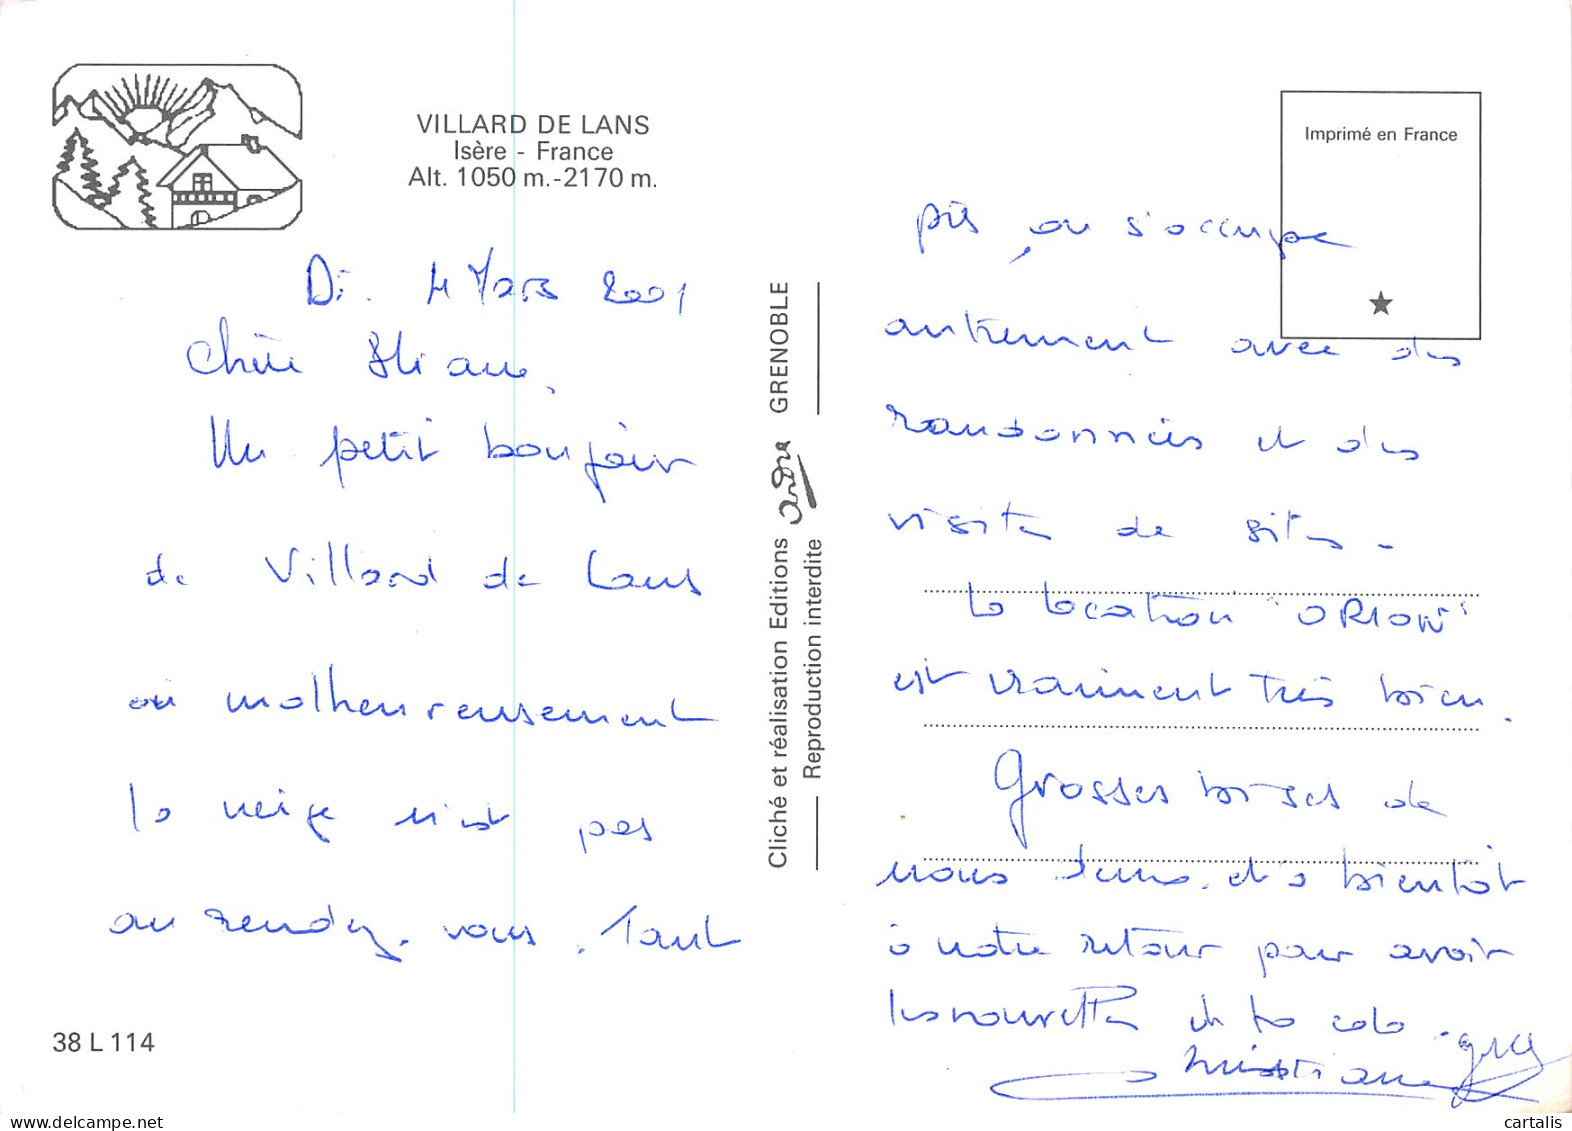 VILLARD DE LANS
Isère - France
Alt. 1050 m.-2170 m.
Di. 4 Mars 2001
Chère Eliane,
Un petit bonjour
de Villard de Lans
où malheureusement
la neige n'est pas
au rendez-vous. Tant
38 L 114
Cliché et réalisation Editions andré GRENOBLE
Reproduction interdite
Imprimé en France
pis, on s'occupe
autrement avec des
randonnées et des
visites de sites.
La location "ORION"
est vraiment très bien.
Grosses bises de
nous deux et à bientôt
à notre retour pour avoir
les nouvelles de la colo.
Christiane
cartalis